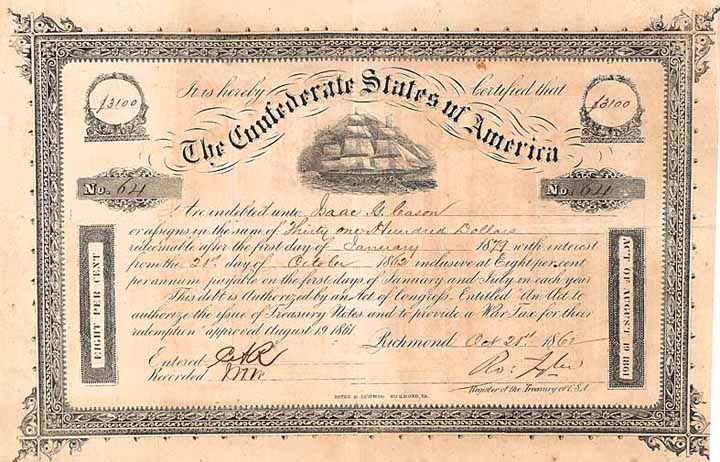 It is hereby Certified that
$3100 $3100
The Confederate States of America
No. 64 No. 64
Are indebted unto Isaac G. Cason
or assigns in the sum of Thirty one Hundred Dollars
redeemable after the first day of January 1879 with interest
from the 21st day of October 1862 inclusive at Eight per cent
per annum payable on the first days of January and July in each year
This debt is Authorized by an Act of Congress, Entitled "An Act to
authorize the issue of Treasury Notes and to provide a War Tax for their
redemption" approved August 19 1861
EIGHT PER CENT
ACT OF AUGUST 19 1861
Richmond Oct 21st 1862
Entered
Recorded
Ro: Tyler
Register of the Treasury of C.S.A.
HOYER & LUDWIG RICHMOND, VA.